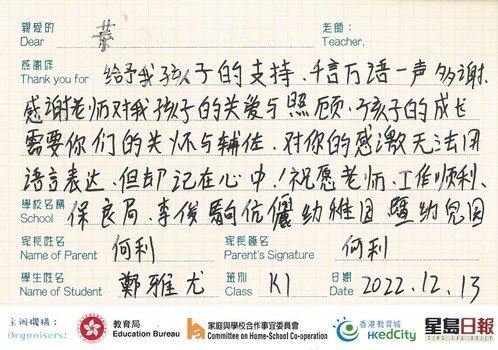 親愛的 葉 老師：
Dear Teacher,
感謝您 給予我孩子的支持、千言万语一声多谢.
Thank you for
感谢老师对我孩子的关爱与照顾、孩子的成长
需要你们的关怀与辅佐、对你的感激无法用
语言表达、但却记在心中！祝愿老师、工作顺利、
學校名稱 保良局、李俊駒伉儷幼稚园暨幼児园
School
家長姓名 何利 家長簽名 何利
Name of Parent Parent's Signature
學生姓名 鄭雅尤 班別 K1 日期 2022.12.13
Name of Student Class Date
主辦機構： 教育局 家庭與學校合作事宜委員會 香港教育城 星島日報
Organisers: Education Bureau Committee on Home-School Co-operation HKedCity SING TAO DAILY